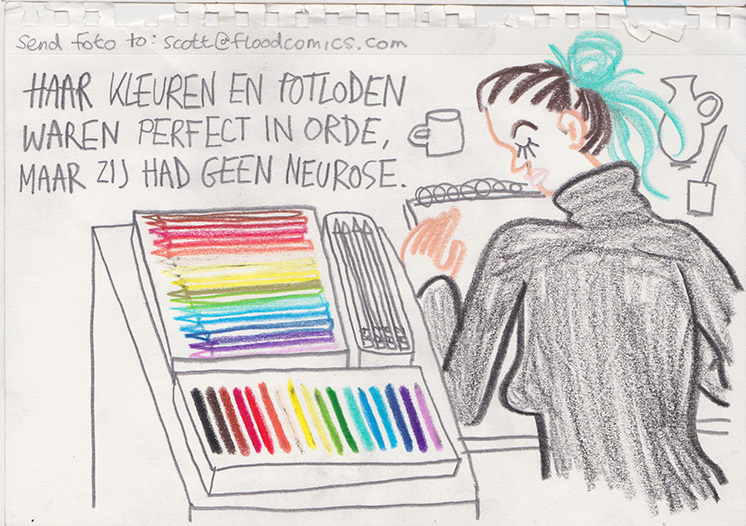 Send foto to: scott@floodcomics.com
HAAR KLEUREN EN POTLODEN
WAREN PERFECT IN ORDE,
MAAR ZIJ HAD GEEN NEUROSE.